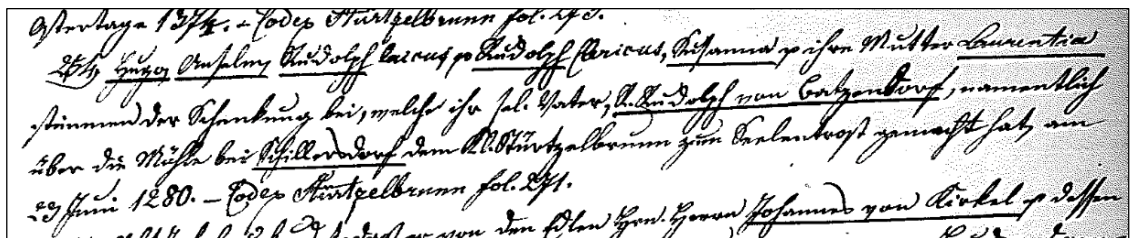 Ostertage 1374. – Codex Stürtzelbronn fol. 273.
254, Hugo, Anselm, Rudolph laicus, Rudolph clericus, Susanna ihre Mutter Laurentia
stimmen der Schenkung bei, welche ihr sel. Vater, R. Rudolph von Batzendorf, namentlich
über die Mühle bei Schillersdorf dem Kl. Stürtzelbrunn zum Seelentrost gemacht hat, am
29 Juni 1280. – Codex Stürtzelbrunn fol. 271.
von den Edlen Hrn. Herrn Johannes von Kirkel dessen